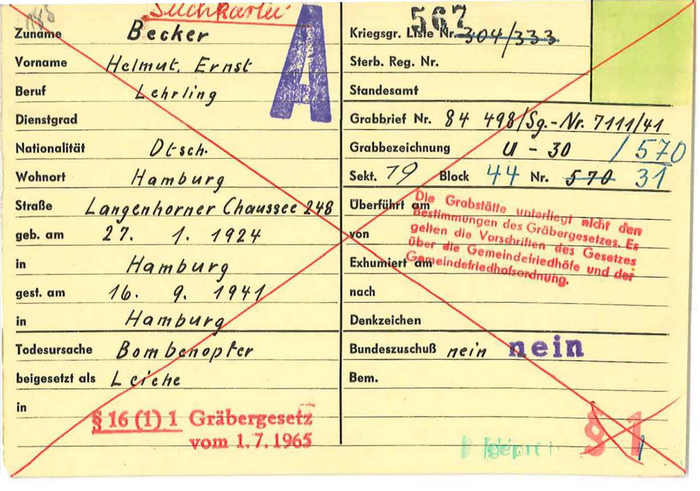 Suchkartei
Zuname Becker
Vorname Helmut, Ernst
Beruf Lehrling
Dienstgrad
Nationalität Dtsch.
Wohnort Hamburg
Straße Langenhorner Chaussee 248
geb. am 27. 1. 1924
in Hamburg
gest. am 16. 9. 1941
in Hamburg
Todesursache Bombenopfer
beigesetzt als Leiche
in
§ 16 (1) 1 Gräbergesetz
vom 1. 7. 1965
A
567
Kriegsgr. Liste Nr. 304/333
Sterb. Reg. Nr.
Standesamt
Grabbrief Nr. 84 498/Sg.-Nr. 7111/41
Grabbezeichnung U - 30 / 570
Sekt. 19 Block 44 Nr. 570 31
Überführt am
von
Exhumiert am
nach
Die Grabstätte unterliegt nicht den
Bestimmungen des Gräbergesetzes. Es
gelten die Vorschriften des Gesetzes
über die Gemeindefriedhöfe und der
Gemeindefriedhofsordnung.
Denkzeichen
Bundeszuschuß nein nein
Bem.
§ 1